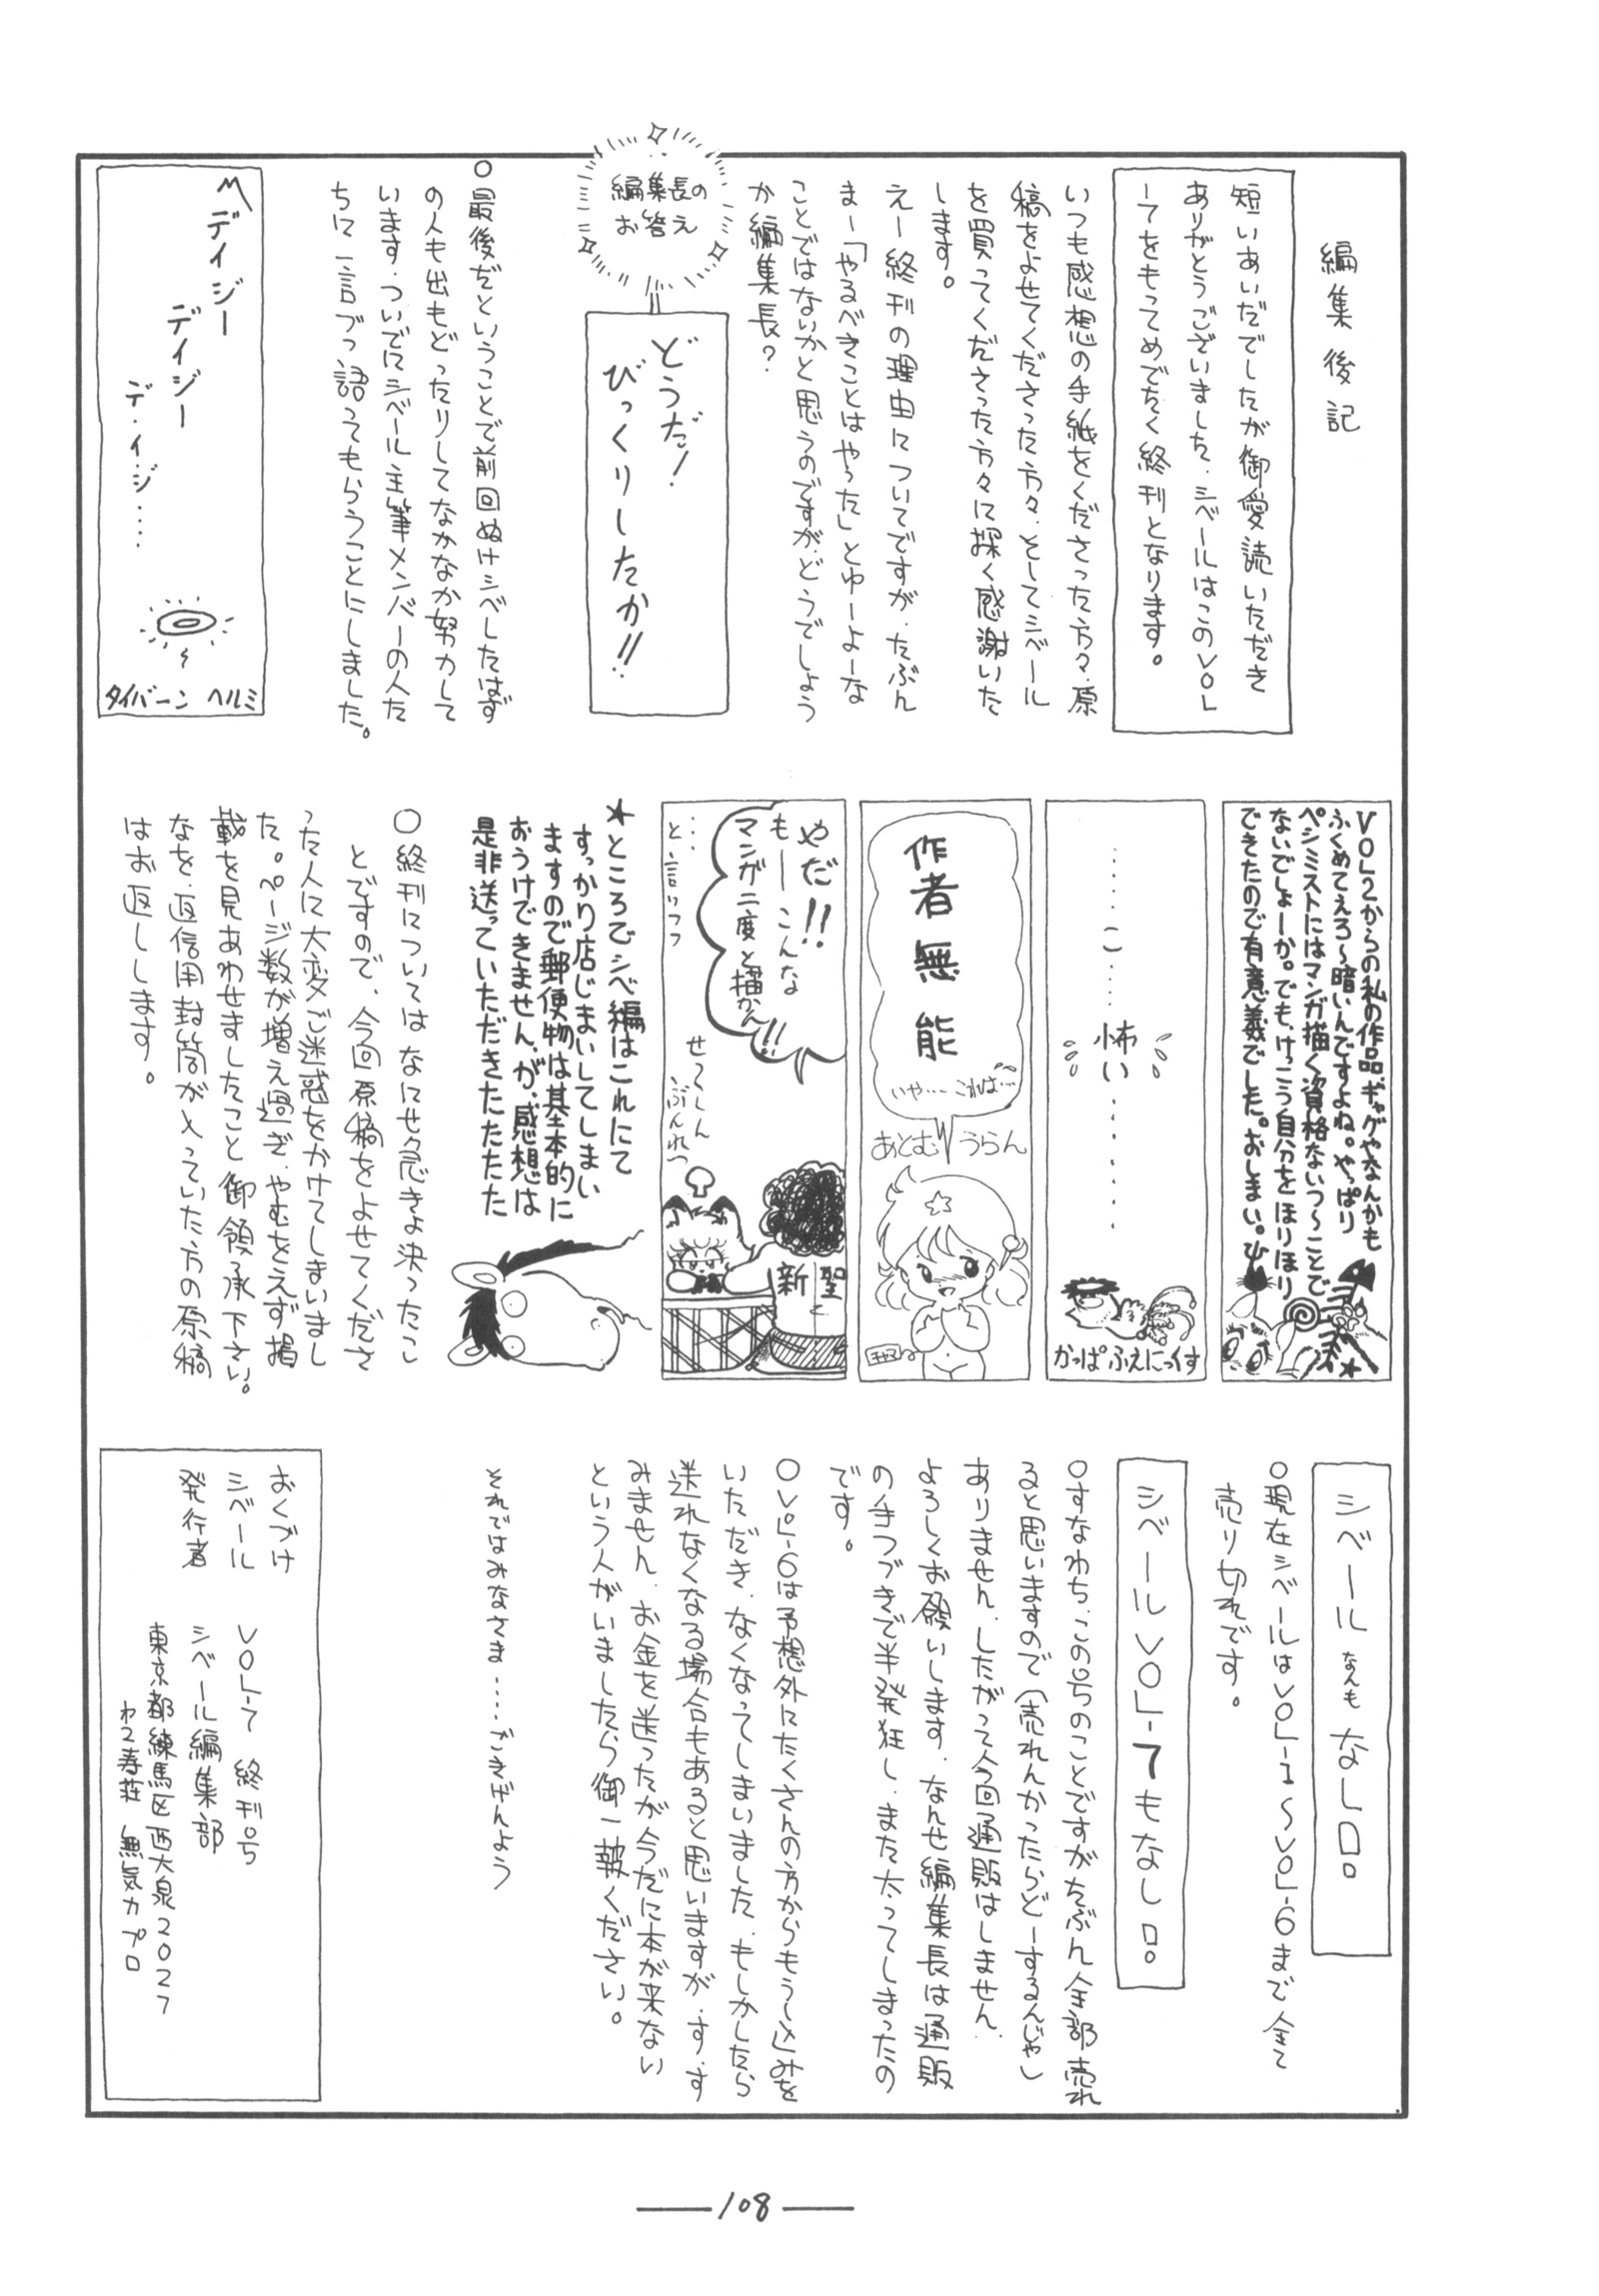 編集後記
短いあいだでしたが御愛読いただき
ありがとうございました.シベールはこのVOL
ーてをもってめでたく終刊となります。
いつも感想の手紙をくださった方々.原
稿をよせてくださった方々.そしてシベール
を買ってくださった方々に深く感謝いた
します。
えー終刊の理由についてですが.たぶん
まー「やるべきことはやった」とゆーよーな
ことではないかと思うのですが.どうでしょう
か編集長?
編集長の
お答え
どうだ!
びっくりしたか!!
○最後だということで前回ぬけシベしたはず
の人も出もどったりしてなかなか努力して
います.ついでにシベール主筆メンバーの人た
ちに一言づつ語ってもらうことにしました。
デイジー
デイジー
デ.イ.ジ.....
タイバーン ヘルミ
VOL2からの私の作品.ギャグやなんかも
ふくめてえろ〜暗いんですよね。やっぱり
ペシミストにはマンガ描く資格ないつ〜ことで
ないでしょーか。でも、けっこう自分をほりほり
できたので有意義でした。おしまい。
......こ......怖い............
かっぱ ふぇにっくす
作者無能
いや---これは...
あとむ うらん
やだ!!
もーこんな
マンガ二度と描かん!!
...と言いつつ
せーしん
ぶんれつ
新聖
★ところでシベ編はこれにて
すっかり店じまいしてしまい
ますので郵便物は基本的に
おうけできません、が、感想は
是非送っていただきたたたた
○終刊については なにせ急きょ決ったこ
とですので、今回原稿をよせてくださ
った人に大変ご迷惑をかけてしまいまし
た。ページ数が増え過ぎ.やむをえず掲
載を見あわせましたこと御領承下さい。
なを、返信用封筒が入っていた方の原稿
はお返しします。
シベール なんも なし口。
○現在シベールはVOL-1〜VOL-6まで全て
売り切れです。
シベールVOL-7もなし口。
○すなわち、この号のことですがたぶん全部売れ
ると思いますので(売れんかったらどーするんじゃ)
ありません.したがって今回通販はしません.
よろしくお願いします.なんせ編集長は通販
の手つづきで半発狂し.また太ってしまったの
です。
○VOL-6は予想外にたくさんの方からもうし込みを
いただき.なくなってしまいました.もしかしたら
送れなくなる場合もあると思いますが.す.す
みません.お金を送ったが今だに本が来ない
という人がいましたら御一報ください。
それではみなさま.....ごきげんよう
おくづけ
シベール VOL-7 終刊号
発行者 シベール編集部
東京都練馬区西大泉2027
寿荘 無気力プロ
108